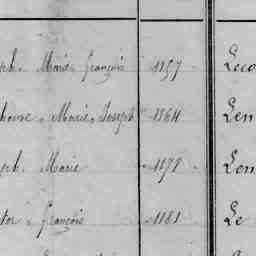 ph. Marie françois 1157 Leco
Marie, Joseph 1364 Len
ph. Marie 1178 Lon
tor, françois 1181 Le